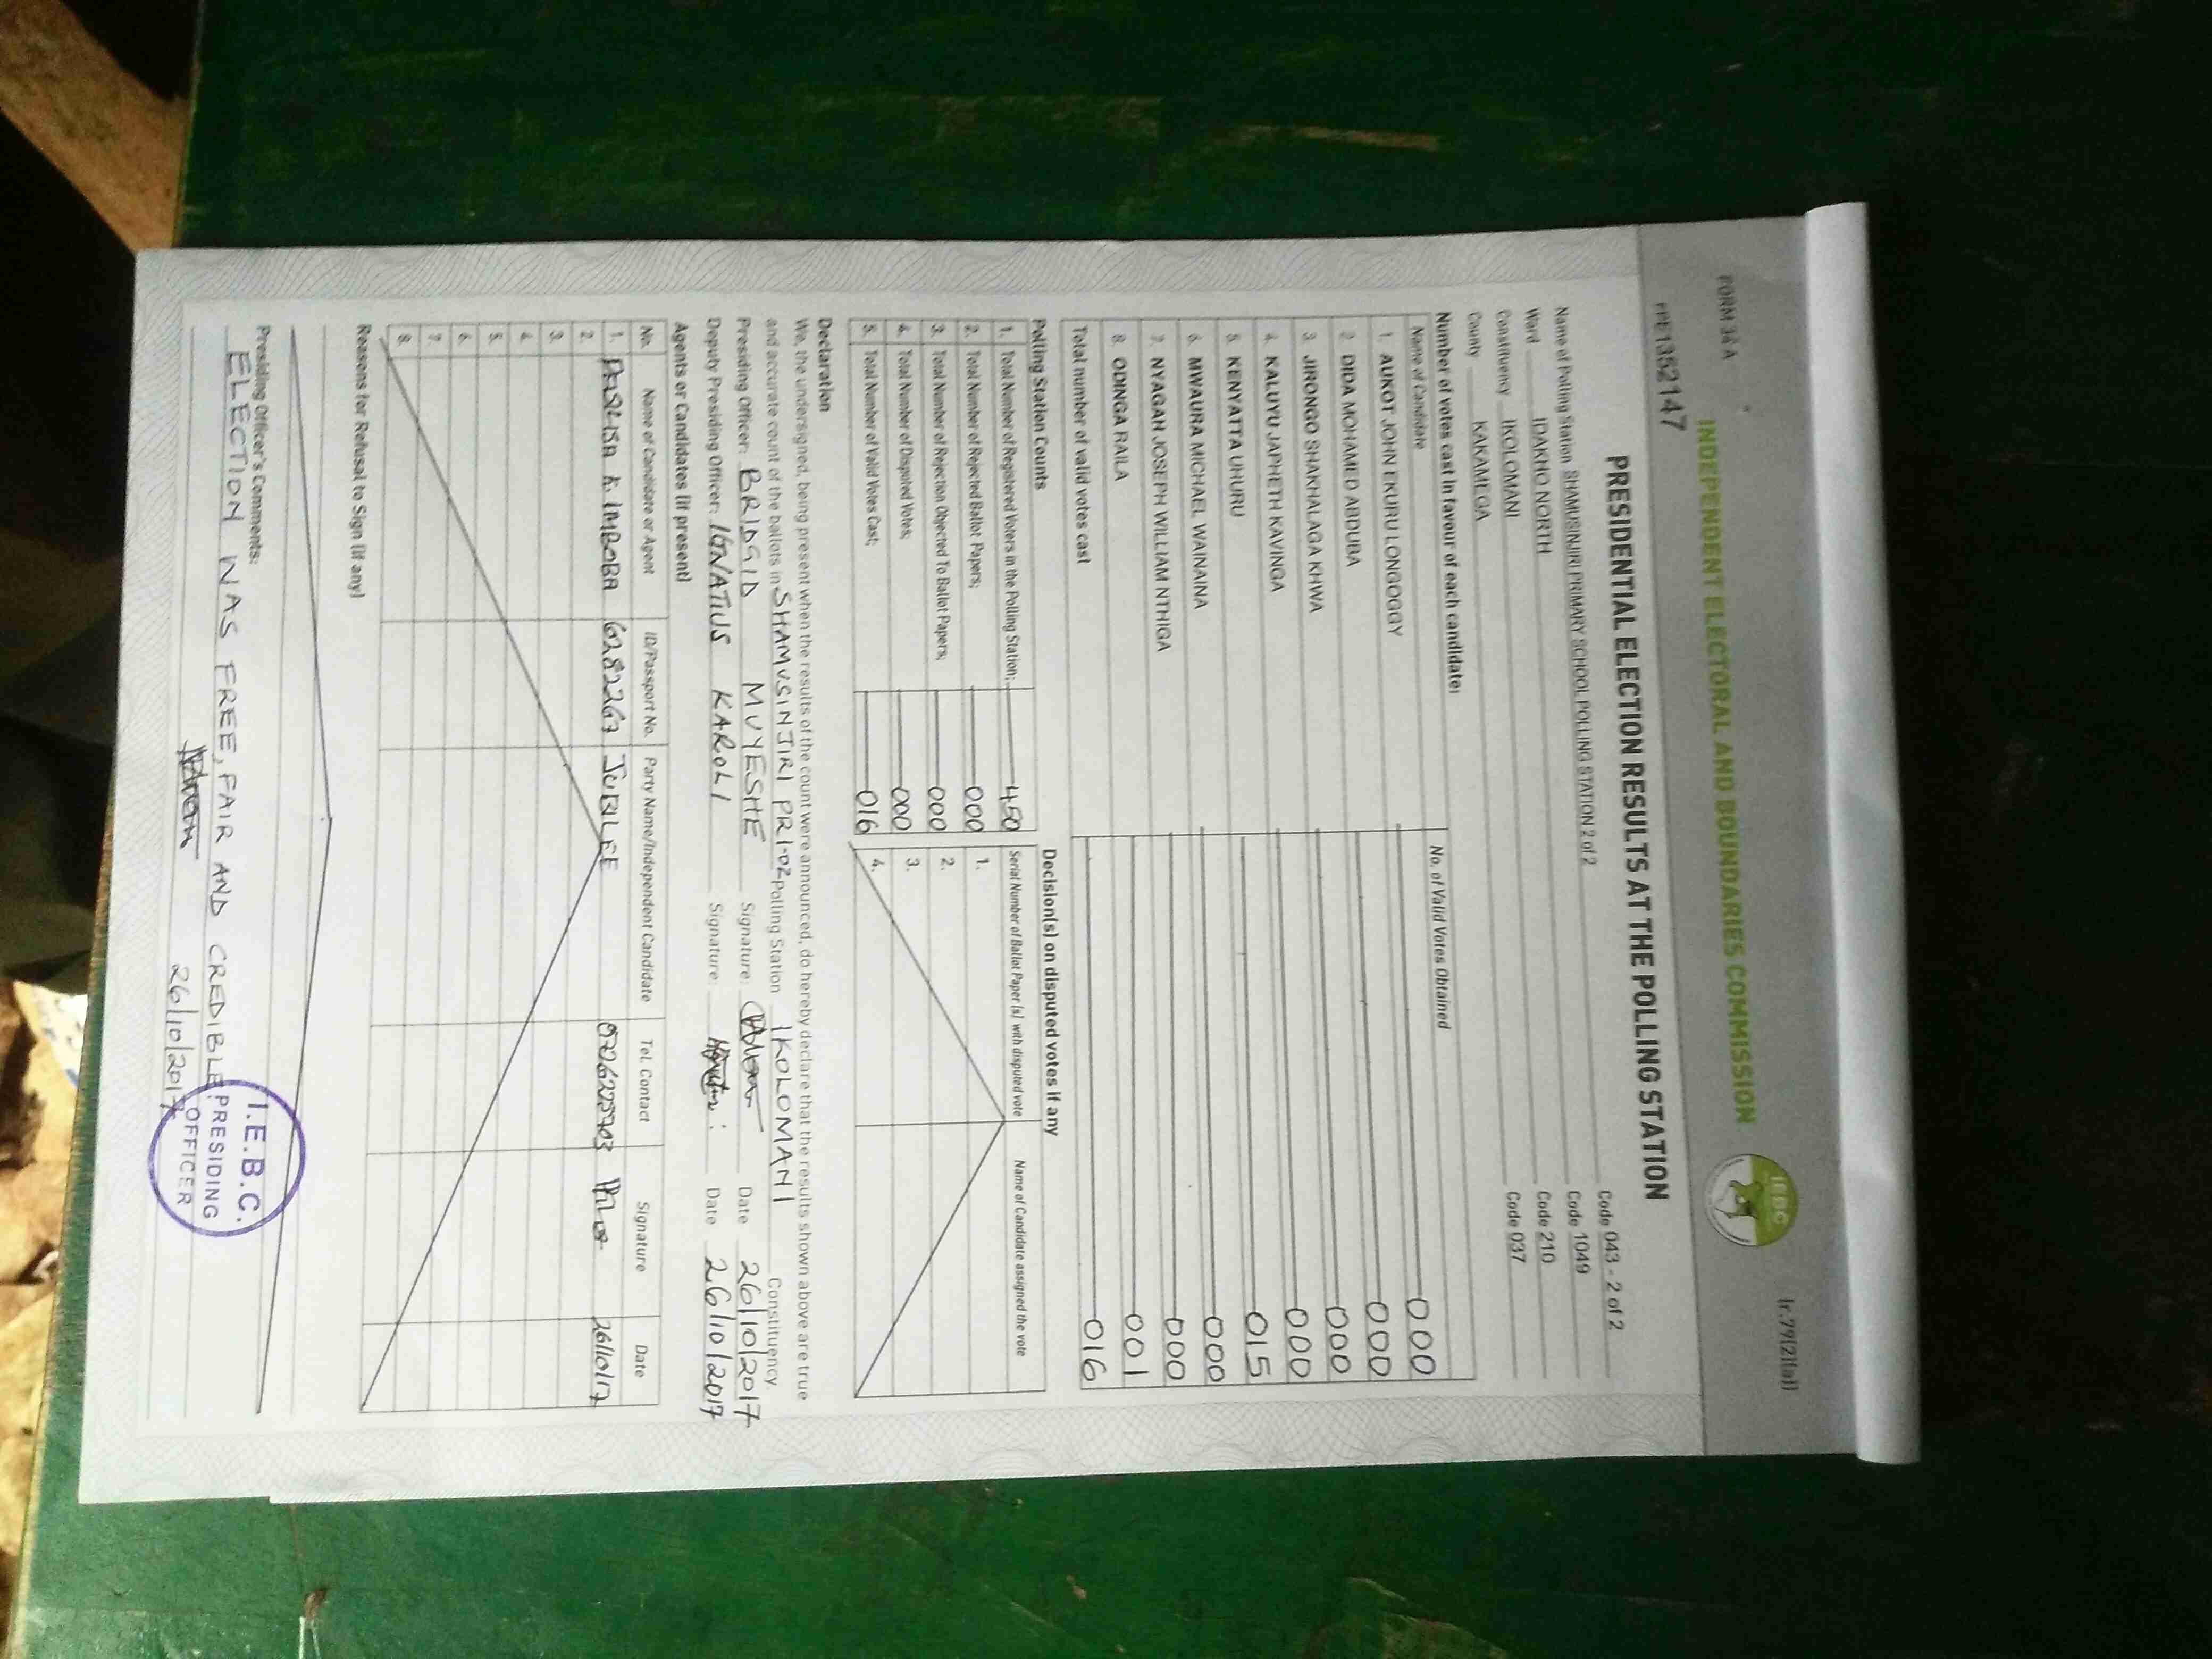 FORM 34 A
(r.79(2)(a))
INDEPENDENT ELECTORAL AND BOUNDARIES COMMISSION
IEBC
PRE1352147
PRESIDENTIAL ELECTION RESULTS AT THE POLLING STATION
Name of Polling Station SHAMUSINJIRI PRIMARY SCHOOL POLLING STATION 2 of 2 Code 043 - 2 of 2
Ward IDAKHO NORTH Code 1049
Constituency IKOLOMANI Code 210
County KAKAMEGA Code 037
Number of votes cast in favour of each candidate:
Name of Candidate No. of Valid Votes Obtained
1. AUKOT JOHN EKURU LONGOGGY 000
2. DIDA MOHAMED ABDUBA 000
3. JIRONGO SHAKHALAGA KHWA 000
4. KALUYU JAPHETH KAVINGA 000
5. KENYATTA UHURU 015
6. MWAURA MICHAEL WAINAINA 000
7. NYAGAH JOSEPH WILLIAM NTHIGA 000
8. ODINGA RAILA 001
Total number of valid votes cast 016
Polling Station Counts
1. Total Number of Registered Voters in the Polling Station; 450
2. Total Number of Rejected Ballot Papers; 000
3. Total Number of Rejection Objected To Ballot Papers; 000
4. Total Number of Disputed Votes; 000
5. Total Number of Valid Votes Cast; 016
Decision(s) on disputed votes if any
Serial Number of Ballot Paper (s) with disputed vote Name of Candidate assigned the vote
1.
2.
3.
4.
Declaration
We, the undersigned, being present when the results of the count were announced, do hereby declare that the results shown above are true
and accurate count of the ballots in SHAMUSINJIRI PRI-02 Polling Station IKOLOMANI Constituency
Presiding Officer: BRIDGID MUYESHE Signature: Date 26/10/2017
Deputy Presiding Officer: IGNATIUS KAROLI Signature: Date 26/10/2017
Agents or Candidates (if present)
No. Name of Candidate or Agent ID/Passport No. Party Name/Independent Candidate Tel. Contact Signature Date
1. K. IMBOBA 6282267 JUBILEE 26/10/17
2.
3.
4.
5.
6.
7.
8.
Reasons for Refusal to Sign (if any)
Presiding Officer's Comments:
ELECTION WAS FREE, FAIR AND CREDIBLE
26/10/2017
I.E.B.C.
PRESIDING
OFFICER